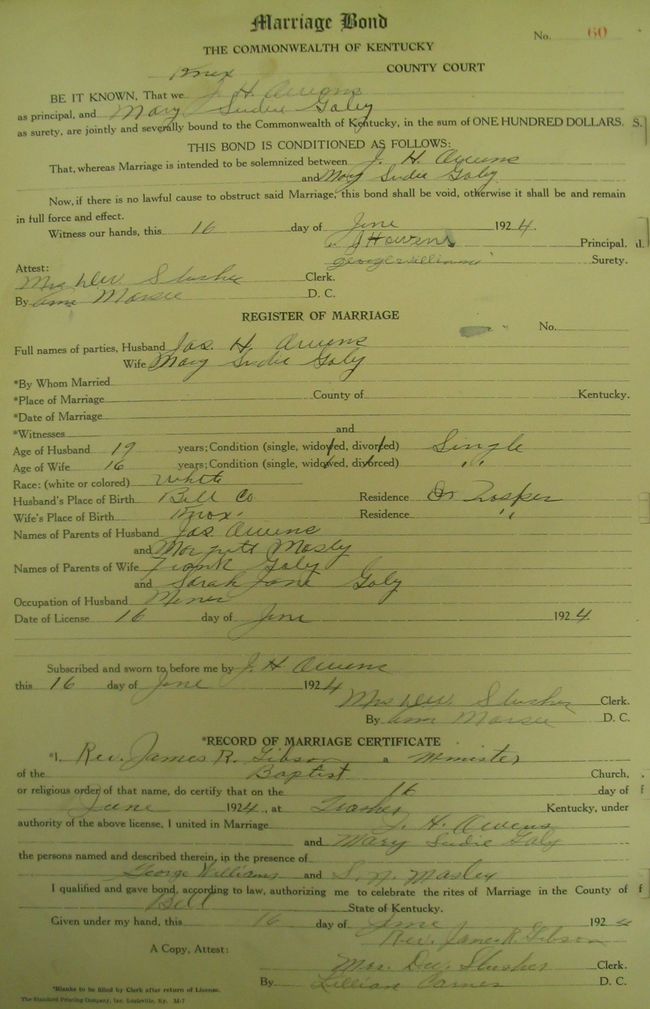 Marriage Bond
No. 60
THE COMMONWEALTH OF KENTUCKY
Knox COUNTY COURT
BE IT KNOWN, That we J. H. Owens
as principal, and Mary Sudie Goly
as surety, are jointly and severally bound to the Commonwealth of Kentucky, in the sum of ONE HUNDRED DOLLARS. S.
THIS BOND IS CONDITIONED AS FOLLOWS:
That, whereas Marriage is intended to be solemnized between J. H. Owens
and Mary Sudie Goly
Now, if there is no lawful cause to obstruct said Marriage, this bond shall be void, otherwise it shall be and remain
in full force and effect.
Witness our hands, this 16 day of June 1924.
J H Owens Principal.
George Williams Surety.
Attest:
Mrs Dew. Slusher Clerk.
By D. C.
REGISTER OF MARRIAGE
No.
Full names of parties, Husband Jas. H. Owens
Wife Mary Sudie Goly
*By Whom Married
*Place of Marriage County of Kentucky.
*Date of Marriage
*Witnesses and
Age of Husband 19 years; Condition (single, widowed, divorced) Single
Age of Wife 16 years; Condition (single, widowed, divorced) "
Race: (white or colored) White
Husband's Place of Birth Bell Co Residence
Wife's Place of Birth Knox. Residence "
Names of Parents of Husband Jas Owens
and Mosly
Names of Parents of Wife Frank Goly
and Sarah Jane Goly
Occupation of Husband Miner
Date of License 16 day of June 1924
Subscribed and sworn to before me by J. H Owens
this 16 day of June 1924
Mrs Dew. Slusher Clerk.
By D. C.
*RECORD OF MARRIAGE CERTIFICATE
*I, Rev. James R. Gibson a Minister
of the Baptist Church,
or religious order of that name, do certify that on the 16 day of
June 1924, at Kentucky, under
authority of the above license, I united in Marriage J. H. Owens
and Mary Sudie Goly
the persons named and described therein, in the presence of
George Williams and S. N. Mosley
I qualified and gave bond, according to law, authorizing me to celebrate the rites of Marriage in the County of
Bell State of Kentucky.
Given under my hand, this 16 day of June 1924
Rev. James R. Gibson
A Copy, Attest:
Mrs. Dew. Slusher Clerk.
By Lillian Carnes D. C.
*Blanks to be filled by Clerk after return of License.
The Standard Printing Company, Inc. Louisville, Ky. M-7